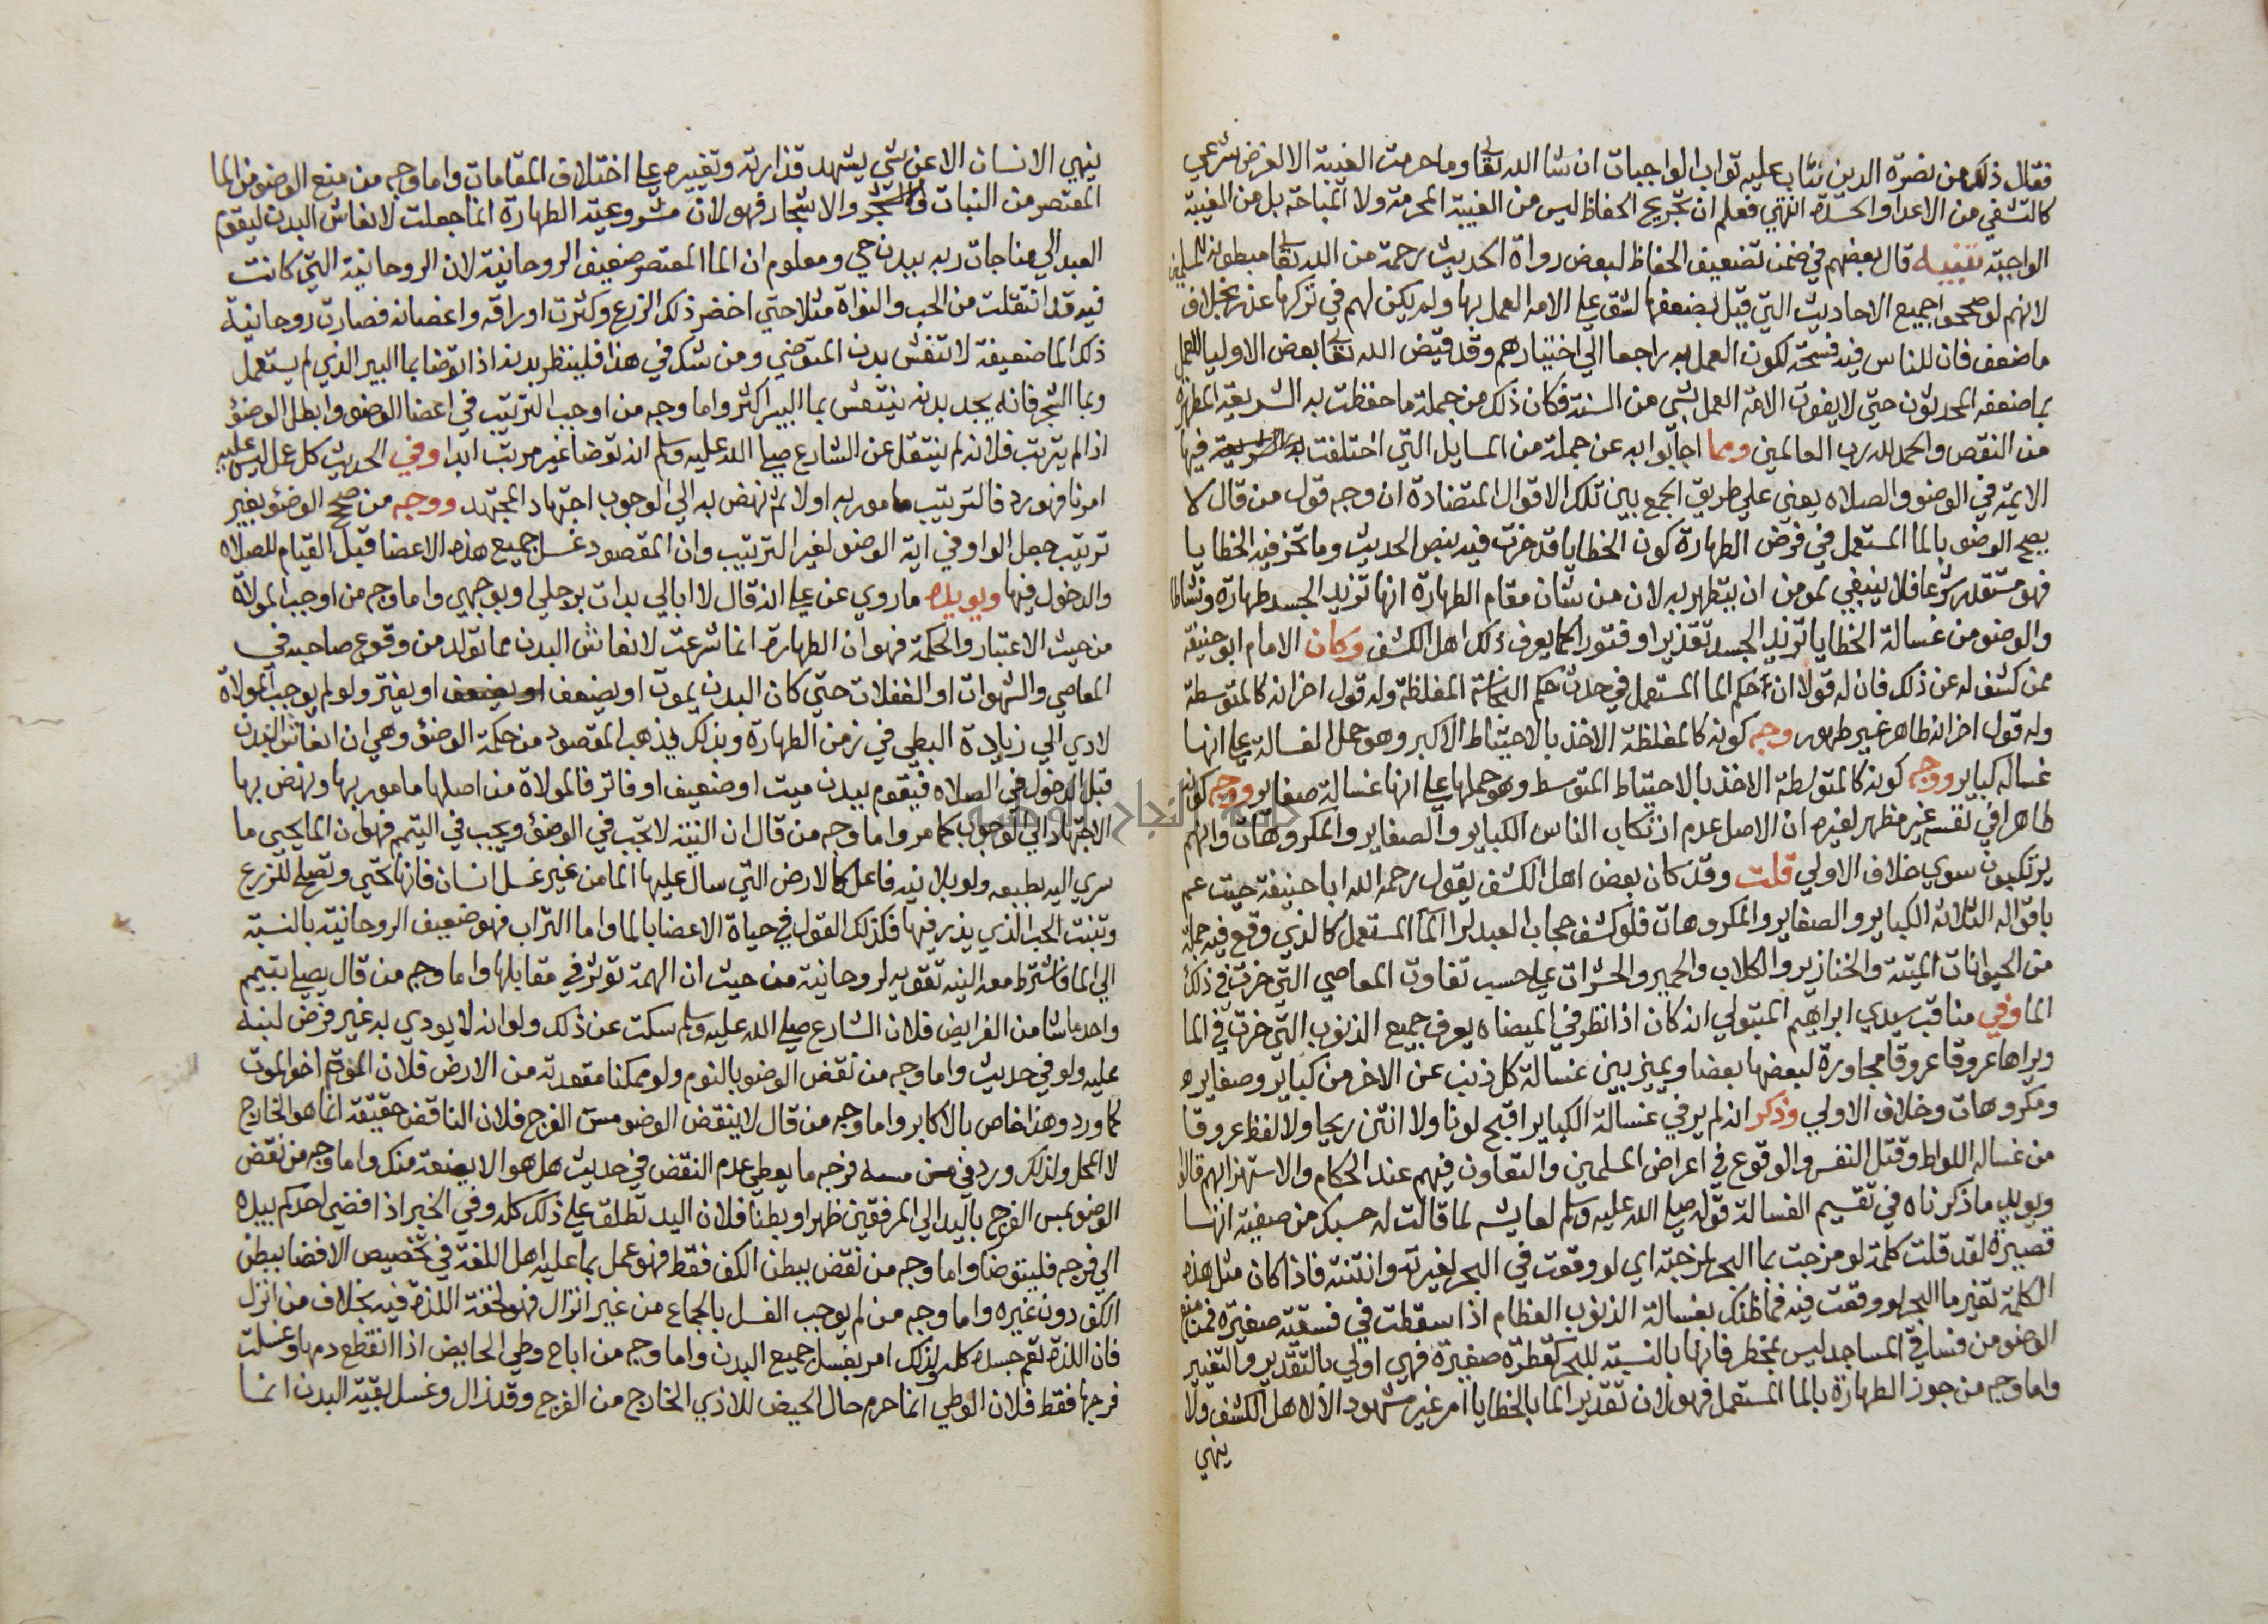 فقال ذلك من نصرة الدين يثاب عليه ثواب الواجبات ان شا الله تعالى وما حرمت الغيبة الا لغرض شرعي
كالتشفي من الاعدا والحسدة انتهي فعلم ان تجريح الحفاظ ليس من الغيبة المحرمة ولا المباحة بل من الغيبة
الواجبة تنبيه قال بعضهم في ضمن تضعيف الحفاظ لبعض رواة الحديث رحمة من الله تعالى
لانهم لو صححوا جميع الاحاديث التي قيل بضعفها لشق على الامة العمل بها ولم يكن لهم في تركها عذر بخلاف
ما ضعف فان للناس فيه فسحة لكون العمل به راجعا الي اختيارهم وقد قيض الله تعالى بعض الاوليا للعمل
بما ضعفه المحدثون حتي لا يفوت الامة العمل بشي من السنة فكان ذلك من جملة ما حفظت به الشريعة المطهرة
من النقص والحمد لله رب العالمين ومما اجابوا به عن جملة من المسايل التي اختلفت فيها
الايمة في الوضو والصلاه يعني علي طريق الجمع بين تلك الاقوال المتضادة ان وجه قول من قال لا
يصح الوضو بالما المستعمل في فرض الطهارة كون الخطايا قد خرت فيه بنص الحديث وما تخر فيه الخطايا
فهو مستقذر شرعا فلا ينبغي لمومن ان يتطهر به لان من شان مقام الطهارة انها تزيد الجسد طهارة ونشاطا
والوضو من غسالة الخطايا تزيد الجسد تقذيرا وفتورا كما يعرف ذلك اهل الكشف وكان الامام ابو حنيفة
ممن كشف له عن ذلك فان له قولا ان حكم الما المستعمل في حدث حكم النجاسة المغلظة وله قول اخر انه كالمتوسطة
وله قول اخر انه طاهر غير طهور وجه كونه كالمغلظة الاخذ بالاحتياط الاكبر وهو حمل الغسالة على انها
غسالة كباير ووجه كونه كالمتوسطة الاخذ بالاحتياط المتوسط وهو حملها على انها غسالة صغاير ووجه كونه
طاهرا في نفسه غير مطهر لغيره ان الاصل عدم ارتكاب الناس الكباير والصغاير والمكروهات وانهم
يرتكبون سوي خلاف الاولي قلت وقد كان بعض اهل الكشف يقول رحم الله ابا حنيفة حيث عم
باقواله الثلاثة الكباير والصغاير والمكروهات فلو كشف حجاب العبد لراا الما المستعمل كالذي وقع فيه جملة
من الحيوانات الميتة والخنازير والكلاب والحمير والحشرات على حسب تفاوت المعاصي التي خرت في ذلك
الما وفي مناقب سيدي ابراهيم المتبولي انه كان اذا نظر في الميضاه يعرف جميع الذنوب التي خرت في الما
ويراها عروقا عروقا مجاورة لبعضها بعضا ويميز بين غسالة كل ذنب عن الاخر من كباير وصغاير
ومكروهات وخلاف الاولي وذكر انه لم ير في غسالة الكباير اقبح لونا ولا انتن ريحا ولا عروقا
من غسالة اللواط وقتل النفس والوقوع في اعراض المسلمين والتعاون فيهم عند الحكام والاستهزا بهم قالا
ويويد ما ذكرناه في تقسيم الغسالة قوله صلي الله عليه وسلم لعايشه لما قالت له حسبك من صفية انها
قصيرة لقد قلت كلمة لو مزجت بما البحر لمزجته اي لو وقعت في البحر لغيرته وانتنته فاذا كان مثل هذه
الكلمة تغير ما البحر لو وقعت فيه فما ظنك بغسالة الذنوب العظام اذا سقطت في فسقية صغيرة فمن منع
الوضو من فساقي المساجد ليس بمخطر فانها بالنسبة للبحر كقطرة صغيرة فهي اولي بالتقدير والتغيير
واما وجه من جوز الطهارة بالما المستعمل فهو لان تقدير الما بالخطايا امر غير مشهود الا لاهل الكشف ولا
ينهي
ينهي الانسان الا عن شي يشهد قذارته وتغييره على اختلاف المقامات واما وجه من منع الوضو من الما
المعتصر من النبات والاشجار فهو لان مشروعية الطهارة انما جعلت لانعاش البدن ليقوم
العبد الي مناجات ربه ببدن حي ومعلوم ان الما المعتصر ضعيف الروحانية لان الروحانية التي كانت
فيه قد انتقلت من الحب والنواة مثلا حتي اخضر ذلك الزرع وكثرت اوراقه واغصانه فصارت روحانية
ذلك الما ضعيفة لا تنعش بدن المتوضي ومن شك في هذا فلينظر بدنه اذا توضا بما البير الذي لم يستعمل
وبما الشجر فانه يجد بدنه ينتعش بما البير اكثر واما وجه من اوجب الترتيب في اعضا الوضو وابطل الوضو
اذا لم يترتب فلانه لم ينتقل عن الشارع صلي الله عليه وسلم انه توضا غير مرتب ابدا وفي الحديث كل عمل ليس عليه
امرنا فهو رد فالترتيب مامور به اولا ثم نهض به الي الوجوب اجتهاد المجتهد ووجه من صحح الوضو بغير
ترتيب جعل الواو في اية الوضو لغير الترتيب وان المقصود غسل جميع هذه الاعضا قبل القيام للصلاه
والدخول فيها ويويده ما روي عن علي انه قال لا ابالي بدات برجلي او بوجهي واما وجه من اوجب الموالاة
من حيث الاعتبار والحكمة فهو ان الطهارة انما شرعت لانعاش البدن مما تولد من وقوع صاحبه في
المعاصي والشهوات او الغفلات حتي كان البدن يموت او يضعف او يفتر ولو لم يوجب الموالاة
لادي الي زيادة البطي في زمن الطهارة وبذلك يذهب المقصود من حكمة الوضو وهي ان انعاش البدن
قبل الدخول في الصلاه فيقوم ببدن ميت او ضعيف او فاتر فالموالاة من اصلها مامور بها ونهض بها
الاجتهاد الي الوجوب كما مر واما وجه من قال ان النية لا تجب في الوضو ويجب في التيمم فهو ان الما يحيي ما
سري اليه بطبعه ولو بلا نية فاعل كالارض التي سال عليها الما من غير غسل انسان فانها تحيي وتصلح للزرع
وتنبت الحب الذي يبذر فيها فكذلك القول في حياة الاعضا بالما واما التراب فهو ضعيف الروحانية بالنسبة
الي الما فاشترط معه النية تقوية لروحانية من حيث ان الهمة توثر في مقابلها واما وجه من قال يصلي بتيمم
واحد ما شا من الفرايض فلان الشارع صلي الله عليه وسلم سكت عن ذلك ولو انه لا يودي به غير فرض لنبه
عليه ولو في حديث واما وجه من نقض الوضو بالنوم ولو ممكنا مقعدته من الارض فلان النوم اخو الموت
كما ورد وهذا خاص بالاكابر واما وجه من قال لا ينقض الوضو مس الفرج فلان الناقض حقيقة انما هو الخارج
لا المحل ولذلك ورد في من مسه فرجه ما يعطي عدم النقض في حديث هل هو الا بضعة منك واما وجه من نقض
الوضو بمس الفرج باليد الي المرفقين ظهرا وبطنا فلان اليد تطلق علي ذلك كله وفي الخبر اذا افضي احدكم بيده
الي فرجه فليتوضا واما وجه من نقض ببطن الكف فقط فهو عمل بما عليه اهل اللغة في تخصيص الافضا ببطن
الكف دون غيره واما وجه من لم يوجب الغسل بالجماع من غير انزال فهو لخفة اللذة فيه بخلاف من انزل
فان اللذة تعم جسده كله ولذلك امر بغسل جميع البدن واما وجه من اباح وطي الحايض اذا انقطع دمها وغسلت
فرجها فقط فلان الوطي انما حرم حال الحيض للاذي الخارج من الفرج وقد زال وغسل بقية البدن انما